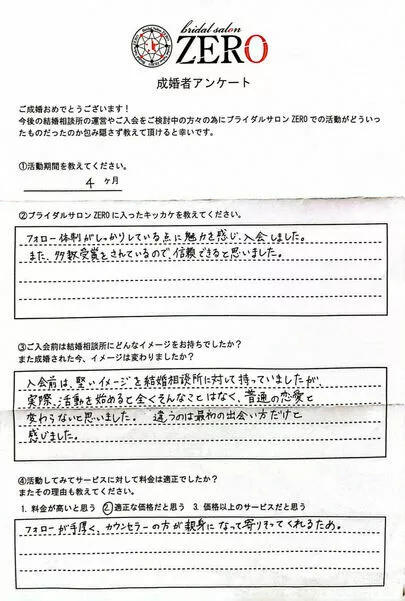 bridal salon
ZERO
成婚者アンケート
ご成婚おめでとうございます！
今後の結婚相談所の運営やご入会をご検討中の方々の為にブライダルサロンZEROでの活動がどういっ
たものだったのか包み隠さず教えて頂けると幸いです。
①活動期間を教えてください。
4 ヶ月
②ブライダルサロンZEROに入ったキッカケを教えてください。
フォロー体制がしっかりしている点に魅力を感じ、入会しました。
また、多数受賞をされているので、信頼できると思いました。
③ご入会前は結婚相談所にどんなイメージをお持ちでしたか？
また成婚された今、イメージは変わりましたか？
入会前は、堅いイメージを結婚相談所に対して持っていましたが、
実際、活動を始めると全くそんなことはなく、普通の恋愛と
変わらないと思いました。 違うのは最初の出会い方だけと
感じました。
④活動してみてサービスに対して料金は適正でしたか？
またその理由も教えてください。
1. 料金が高いと思う ②適正な価格だと思う 3. 価格以上のサービスだと思う
フォローが手厚く、カウンセラーの方が親身になって寄りそってくれるため。